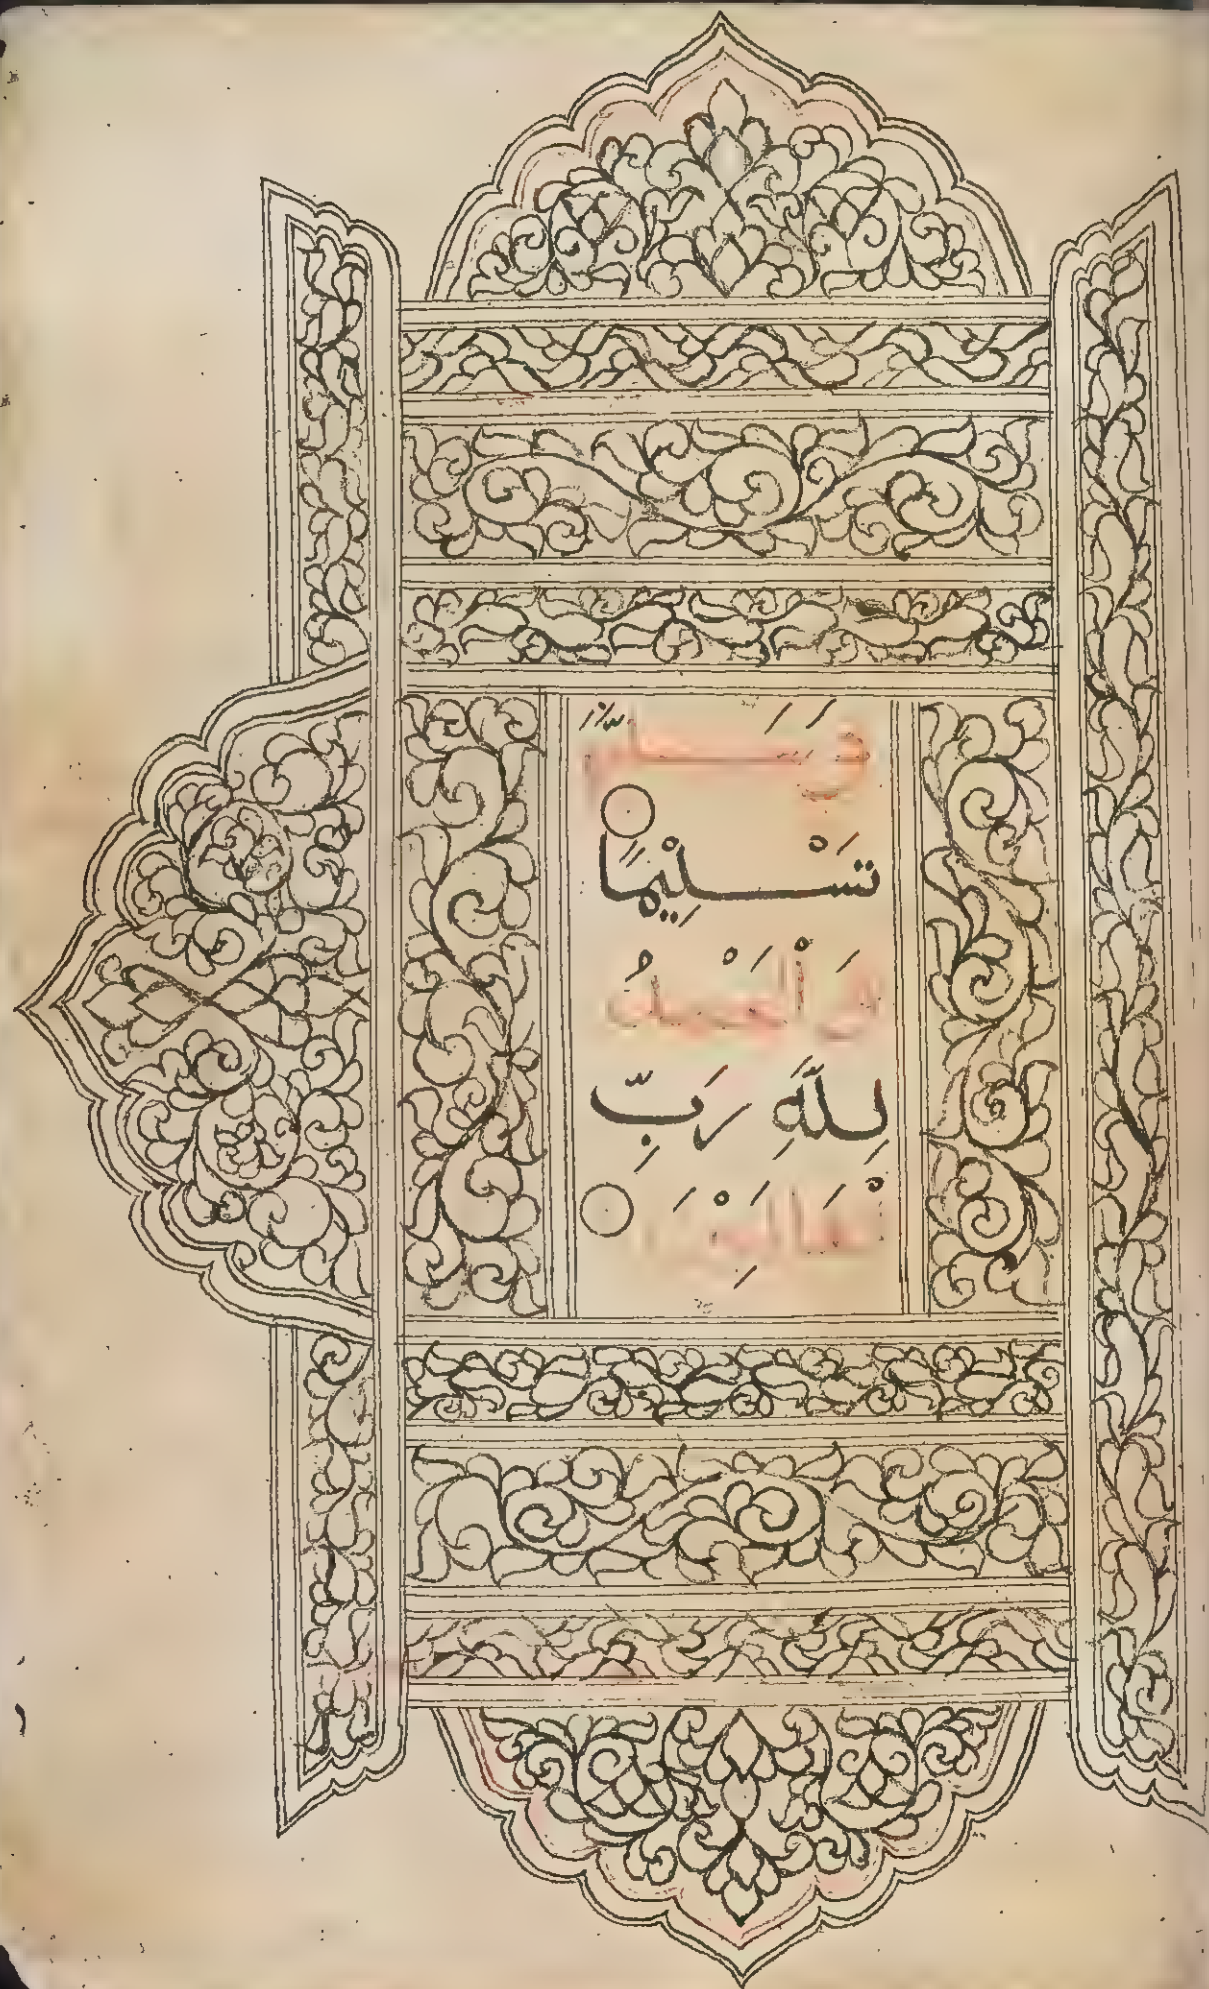 وَسَلَّمَ
تَسْلِيْمًا
وَ الْحَمْدُ
لِلّٰهِ رَبِّ
الْعَالَمِيْنَ